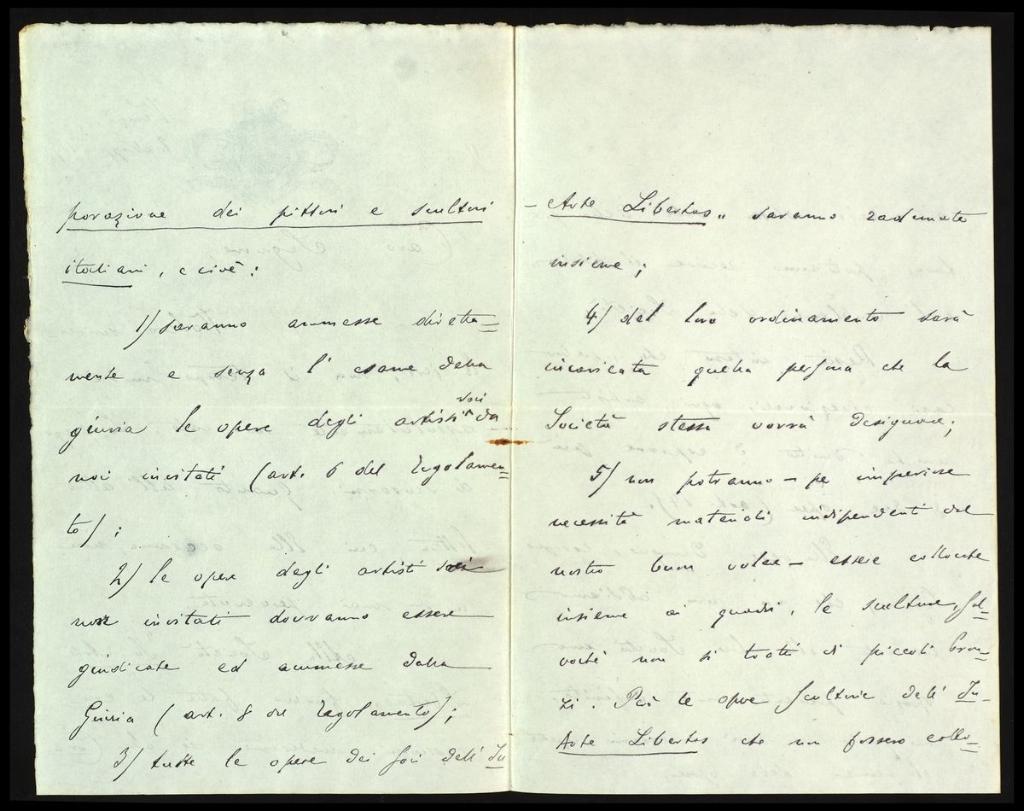 porazione dei pittori e scultori
italiani, e cioè:
1) saranno ammesse diretta=
mente e senza l'esame della
giuria le opere degli artisti soci da
noi invitati (art. 6 del regolamen=
to);
2) le opere degli artisti soci
non invitati dovranno essere
giudicate ed ammesse dalla
Giuria (art. 8 del regolamento);
3) tutte le opere dei soci dell'In
Arte Libertas" saranno radunate
insieme;
4) del loro ordinamento sarà
incaricata quella persona che la
Società stessa vorrà designare;
5) non potranno – per imperiose
necessità materiali indipendenti dal
nostro buon volere – essere collocate
insieme ai quadri, le sculture, sal=
vochè non si tratti di piccoli bron=
zi. Per le opere scultorie dell'In-
Arte Libertas che non fossero collo=